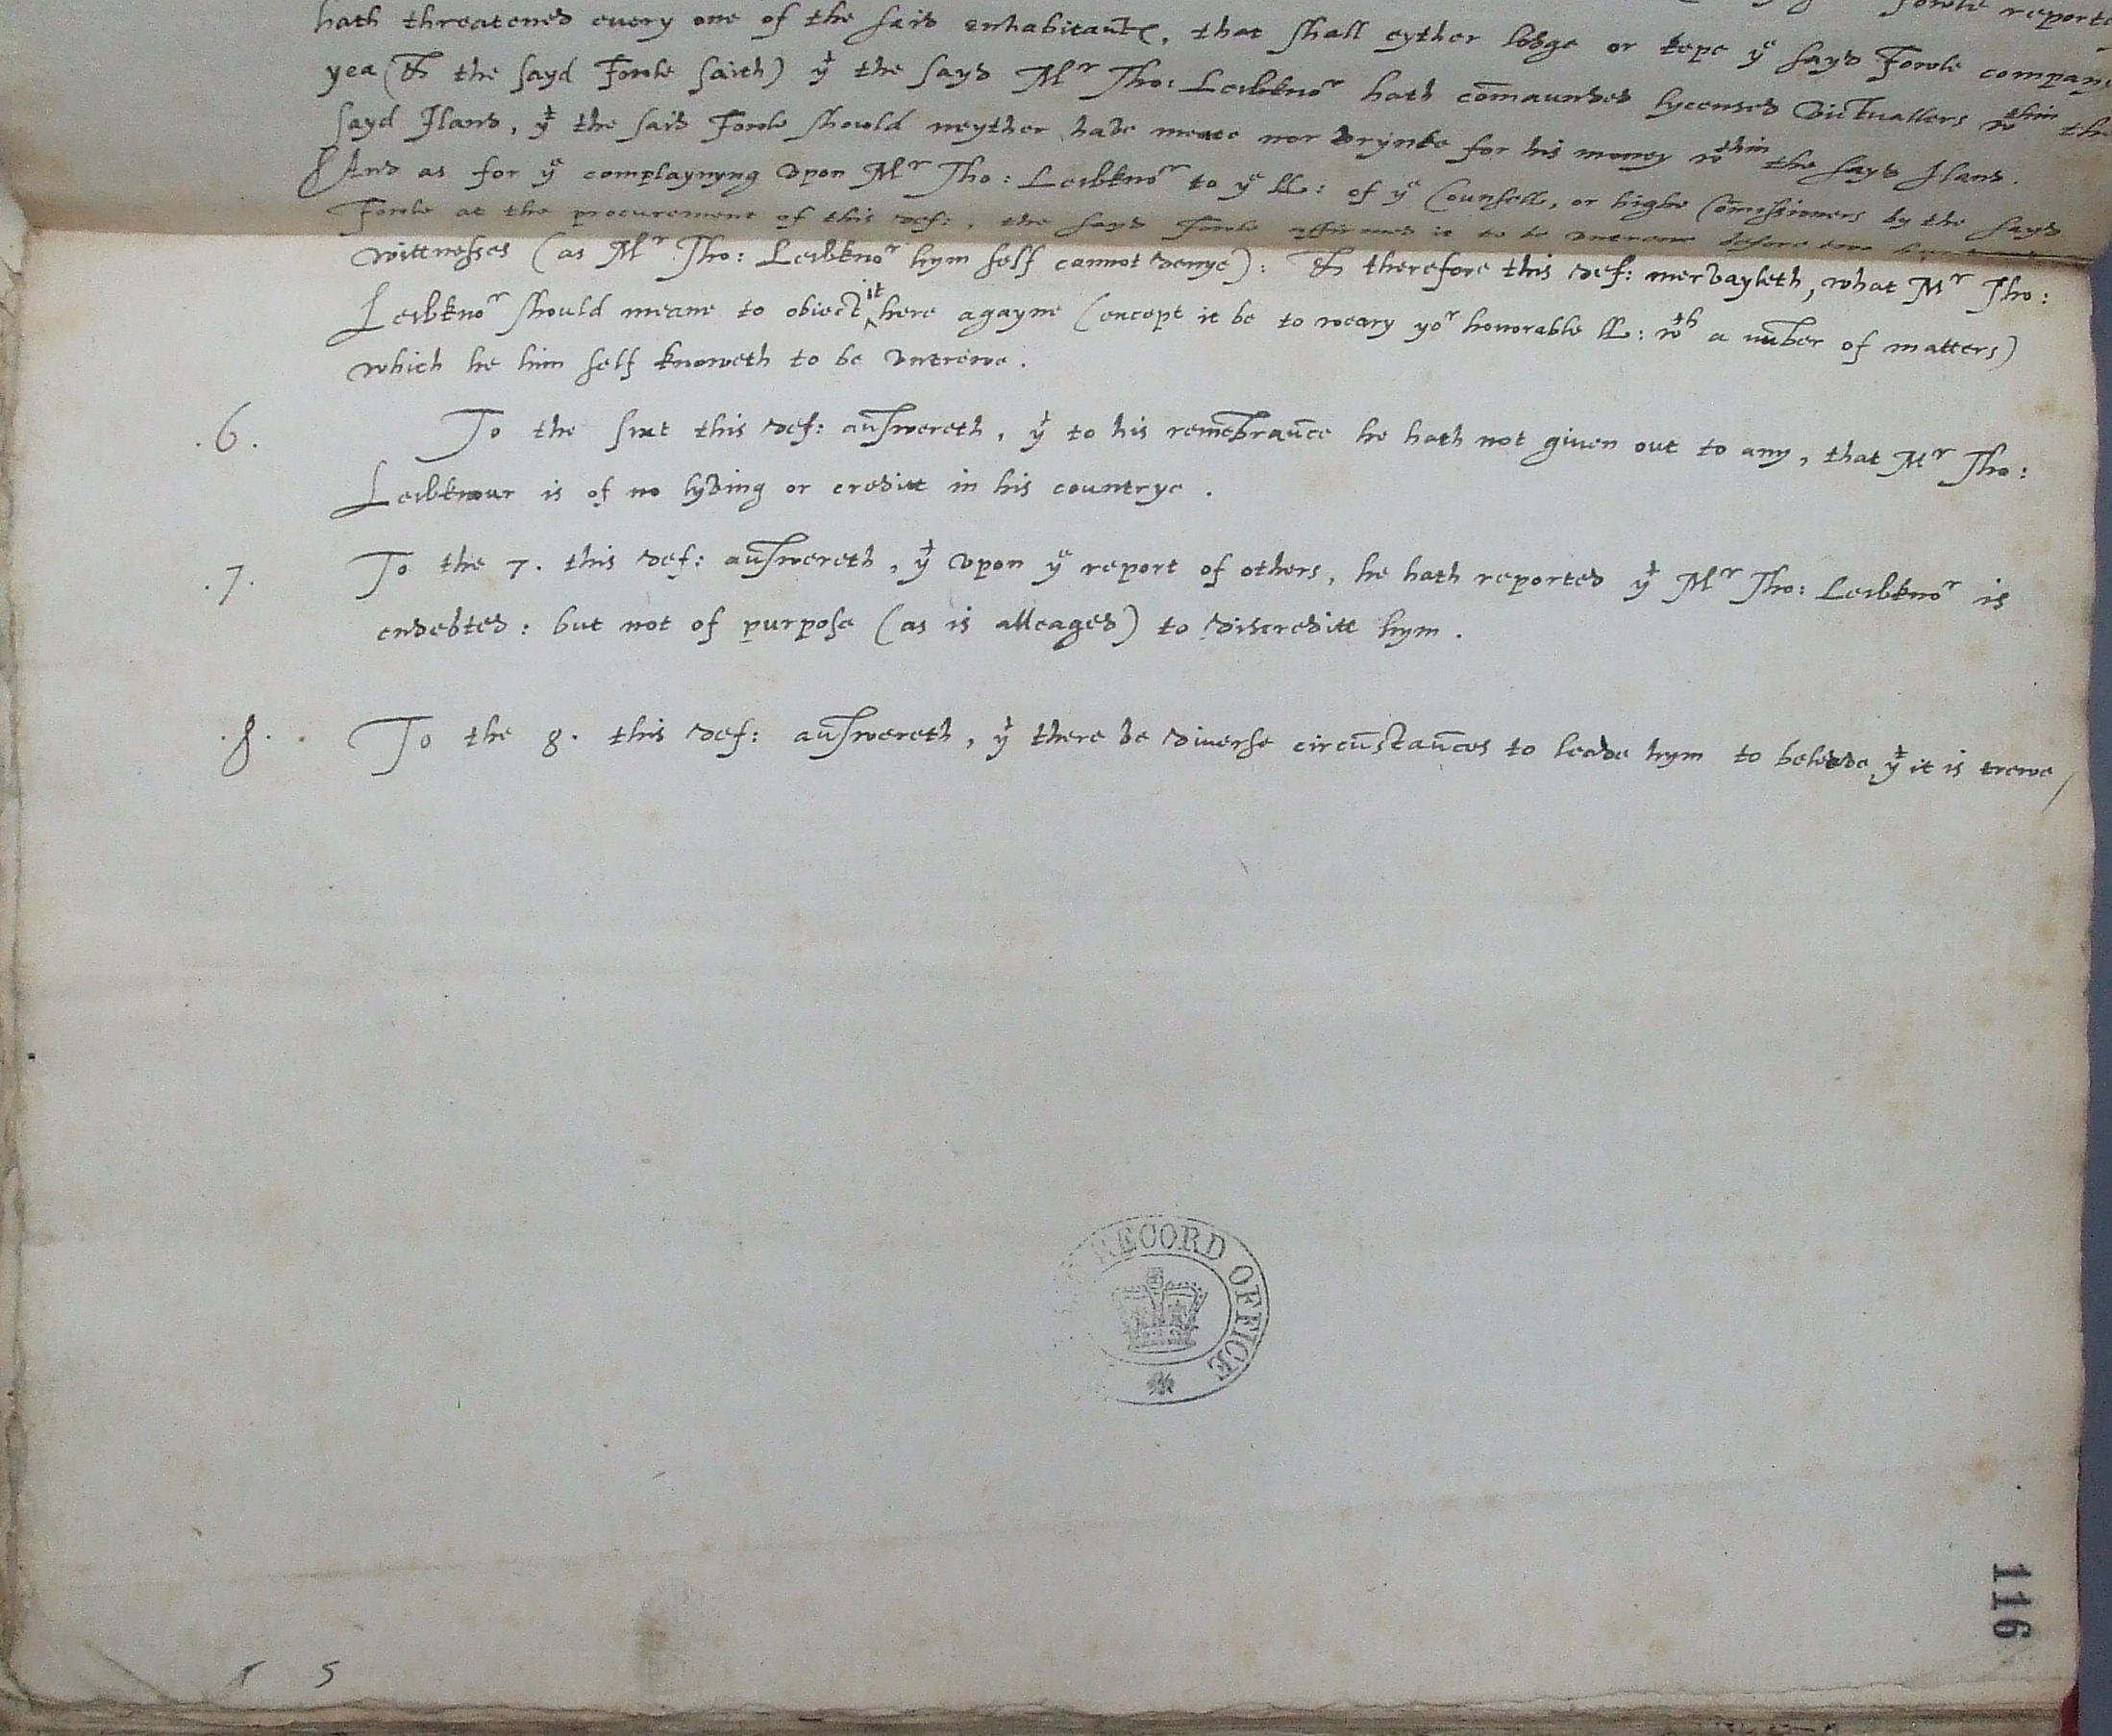 Fowle reporte
hath threatened every one of the said enhabitautes, that shall eyther lodge or kepe yͤ sayd Fowle company
yea (& the sayd Fowle saith) yͭ the sayd Mʳ Tho: Leuknoʳ hath com̄aunded lycensed victuallers wᵗʰⁱⁿ the
sayd Iland, yͭ the said Fowle should neyther have meate nor drynke for his money wᵗʰⁱⁿ the sayd Iland.
And as for yͤ complaynyng vpon Mʳ Tho: Leuknoʳ to yͤ ll: of yͤ Counsell, or highe Com̄issioners by the sayd
Fowle at the procurement of this def:, the sayd Fowle affirmed it to be vntrewe before two
wittnesses (as Mʳ Tho: Leuknoʳ hym self cannot denye): & therefore this def: mervayleth, what Mʳ Tho:
Leuknoʳ should meane to obiect ^it here agayne (except it be to weary yoʳ honorable ll: wᵗʰ a nūber of matters)
which he him self knoweth to be vntrewe.
.6. To the sixt this def: aūswereth, yͭ to his remēbraūce he hath not given out to any, that Mʳ Tho:
Leuknour is of no lyving or creditt in his countrye.
.7. To the 7. this def: aūswereth, yͭ vpon yͤ report of others, he hath reported yͭ Mʳ Tho: Leuknoʳ is
endebted: but not of purpose (as is alleaged) to discreditt hym.
.8. To the 8. this def: aūswereth, yͭ there be diverse circūstaūces to leade hym to beleve yͭ it is trewe /
RECORD OFFICE
116
5